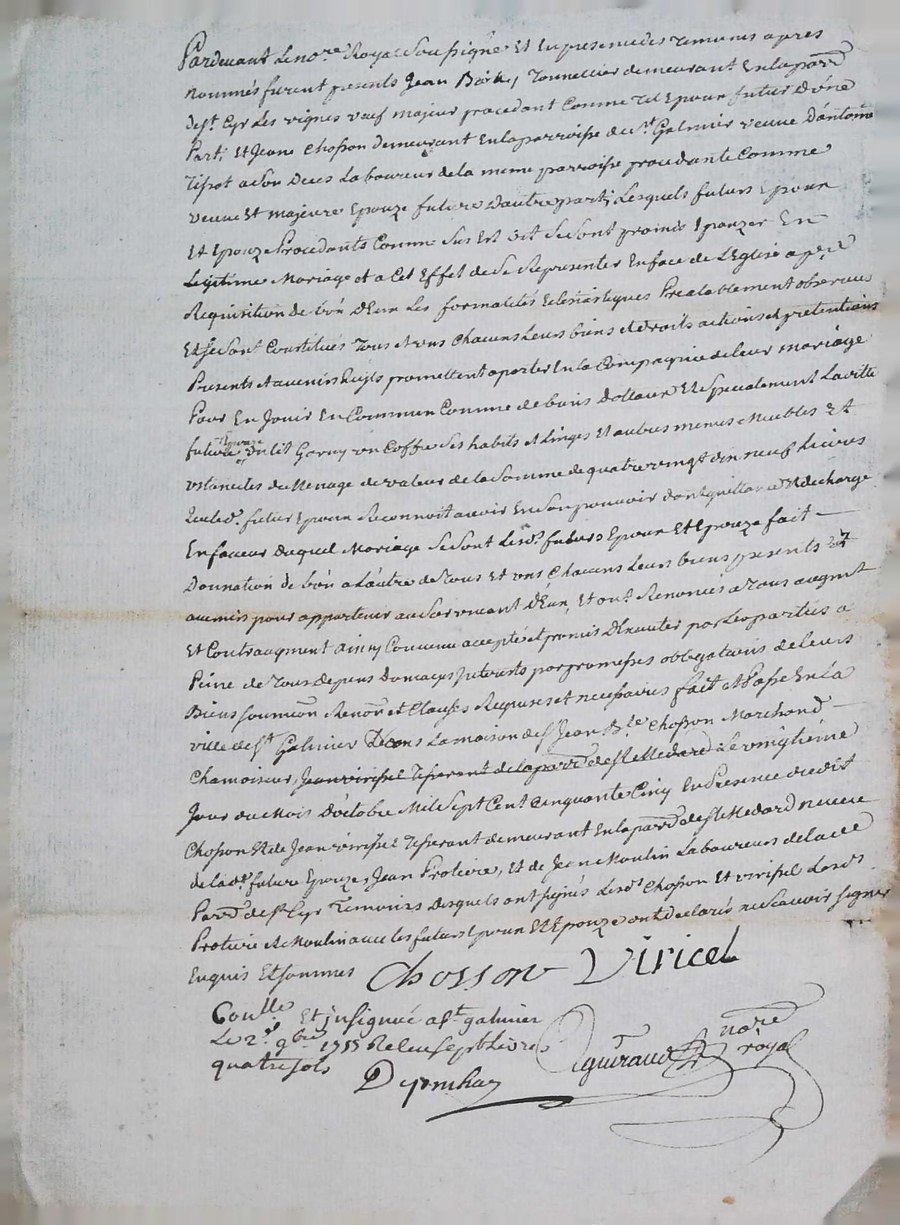 Pardevant Le no.re Royal Soussigné Et En presence des temoins apres
nommés furent presents Jean Tonnellier demeurant En la parr.e
de s.t Cyr Les vignes veuf majeur procedant Comme tel Epoux futur D'une
Part, Et Jeane Chosson demeurant En la parroisse de s.t Galmier veuve D'antoine
Tissot a son Deces Laboureur de la meme parroisse procedante Comme
veuve Et majeure Epouze future D'autre parti, Lesquels futurs Epoux
Et Epouze Procedants Comme Sus Est dit Se Sont promis Epouzer En
Legitime Mariage et a Cet Effet de Se Representer En face de L'Eglise a p.re
Requisition de L'un D'Eux Les formalités Eclesiastiques Prealablement observées
Et Se Sont Constitués tous et uns Chacuns Leurs biens et droits actions et pretentions
Presents et avenirs qu'ils promettent aporter En la Compagnie de leur mariage
Pour En Jouir En Commun Comme de biens Dottaux Et Specialement La ditte
future Epouze un lit Garny un Coffre Ses habits et Linges Et autres menus Meubles Et
ustancilles de Menage de valeur de la Somme de quatre vingt dix neuf Livres
que le d.t futur Epoux Reconnoit avoir En Son pouvoir dont quittance Et decharge
En faveur duquel Mariage Se Sont Les d.s futurs Epoux Et Epouze fait
Donnation de L'un a L'autre de tous Et uns Chacuns Leurs biens presents Et
avenirs pour appartenir au Survivant D'Eux, Et ont Renoncés a tous augment
Et Contraugment ainsy Convenu accepté et promis D'Executer par Les parties a
Peine de tous depens Domages Interests par promesses obligatoires de leurs
Biens Soumission Renon.on et Clauses Requises et necessaires fait et Passé En La
ville de s.t Galmier Dans La maison de s.r Jean B.te Chosson Marchand
Chamoiseur, Le vingtieme
Jour du Mois D'octobre Mil Sept Cent Cinquante Cinq En Presence du dit
Chosson Et de Jean viricel Tisserant demeurant En la parr.e de s.t Medard neveu
de la d.te future Epouze, Jean Protiere, Et de Jean Moulin Laboureurs de la de
Parr.e de s.t Cyr Temoins Desquels ont signés Les d.s Chosson Et viricel Les d.s
Protiere et Moulin avec les futurs Epoux Et Epouze ont declarés ne Scavoir signer
Enquis Et Sommés Chosson Viricel
Conllé Et insignué a s.t galmier
Le 2.e 9bre 1755 Receu sept Livres
quatre sols
Deguiraud no.re royal